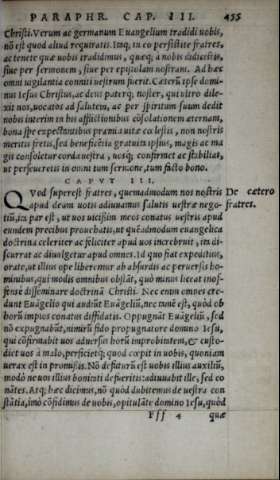 PARAPHR. CAP. III. 455
Christi. Verum ac germanum Euangelium tradidi uobis,
nõ est quod aliud requiratis. Imò, in eo persistite fratres,
ac tenete quæ uobis tradidimus, quæq; à nobis didicistis,
siue per sermonem, siue per epistolam nostram. Ad hæc
omni uigilantia conniti uestrum fuerit. Cæterũ ipse domi-
nus Iesus Christus, ac deus paterq; noster, qui ultro dile-
xit nos, uocatos ad salutem, ac per spiritum suum dedit
nobis interim in his afflictionibus cõsolationem æternam,
bona spe expectantibus præmia uitæ cœlestis, non nostris
meritis fretis, sed beneficentia gratuita ipsius, magis ac ma
gis consoletur corda uestra, uosq; confirmet ac stabiliat,
ut perseueretis in omni tum sermone, tum facto bono.
CAPVT III.
QVod superest fratres, quemadmodum nos nostris De cætero
apud deum uotis adiuuamus salutis uestræ nego- fratres.
tiũ, ita par est, ut uos uicissim meos conatus uestris apud
eundem precibus prouehatis, ut quẽadmodum euangelica
doctrina celeriter ac feliciter apud uos increbruit, ita di-
scurrat ac diuulgetur apud omnes. Id quo fiat expeditius,
orate, ut illius ope liberemur ab absurdis ac peruersis ho-
minibus, qui modis omnibus obstãt, quò minus liceat inof-
fense disseminare doctrinã Christi. Nec enim omnes cre-
dunt Euãgelio qui audiũt Euãgeliũ, nec tamẽ est, quòd ob
horũ impios conatus diffidatis. Oppugnãt Euãgeliũ, sed
nõ expugnabũt, nimirũ fido propugnatore domino Iesu,
qui cõfirmabit uos aduersus horũ improbitatem, & custo-
diet uos à malo, perficietq; quod cœpit in uobis, quoniam
uerax est in promissis. Nõ defuturũ est uobis illius auxiliũ,
modò ne uos illius bonitati defueritis: adiuuabit ille, sed co
nãtes. Atq; hæc dicimus, nõ quòd dubitemus de uestra con
stãtia, imò cõfidimus de uobis, opitulãte domino Iesu, quòd
Fff 4 quæ